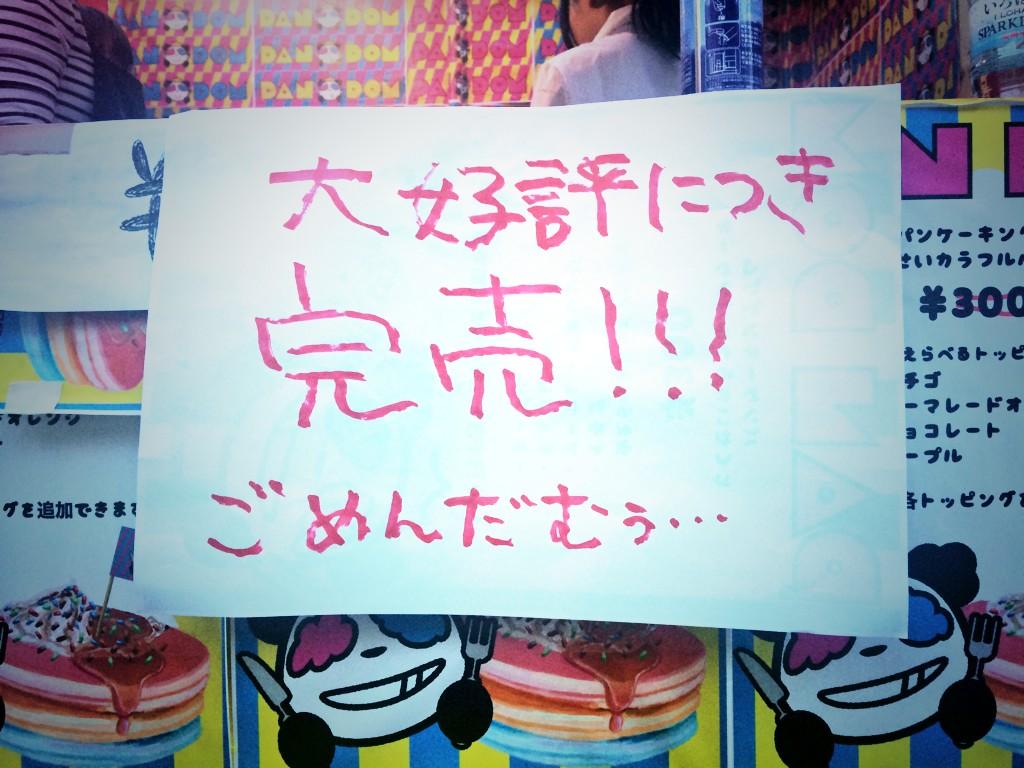 PAN DOM
SPARK
大好評につき
完売!!!
ごめんだむぅ…
¥
N
パンケーキン
せいカラフル
¥300
えらべるトッピ
チゴ
ーマレードオ
ョコレート
ープル
各トッピングを
オレンジ
グを追加できます